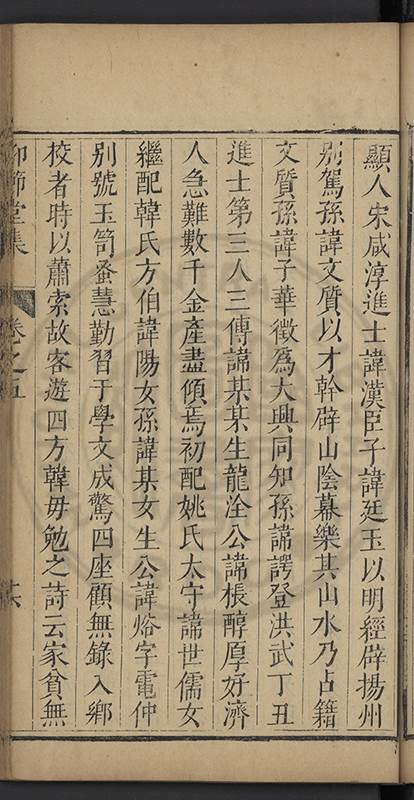 顯人宋咸淳進士諱漢臣子諱廷玉以明經辟揚州
別駕孫諱文質以才幹辟山陰幕樂其山水乃占籍
文質孫諱子華徵為大興同知孫諱諤登洪武丁丑
進士第三人三傳諱某某生龍淦公諱棖醇厚好濟
人急難數千金產盡傾焉初配姚氏太守諱世儒女
繼配韓氏方伯諱陽女孫諱某女生公諱焀字電仲
別號玉笥蚤慧勤習于學文成驚四座顧無錄入鄉
校者時以蕭索故客遊四方韓毋勉之詩云家貧無
節堂集 卷之五